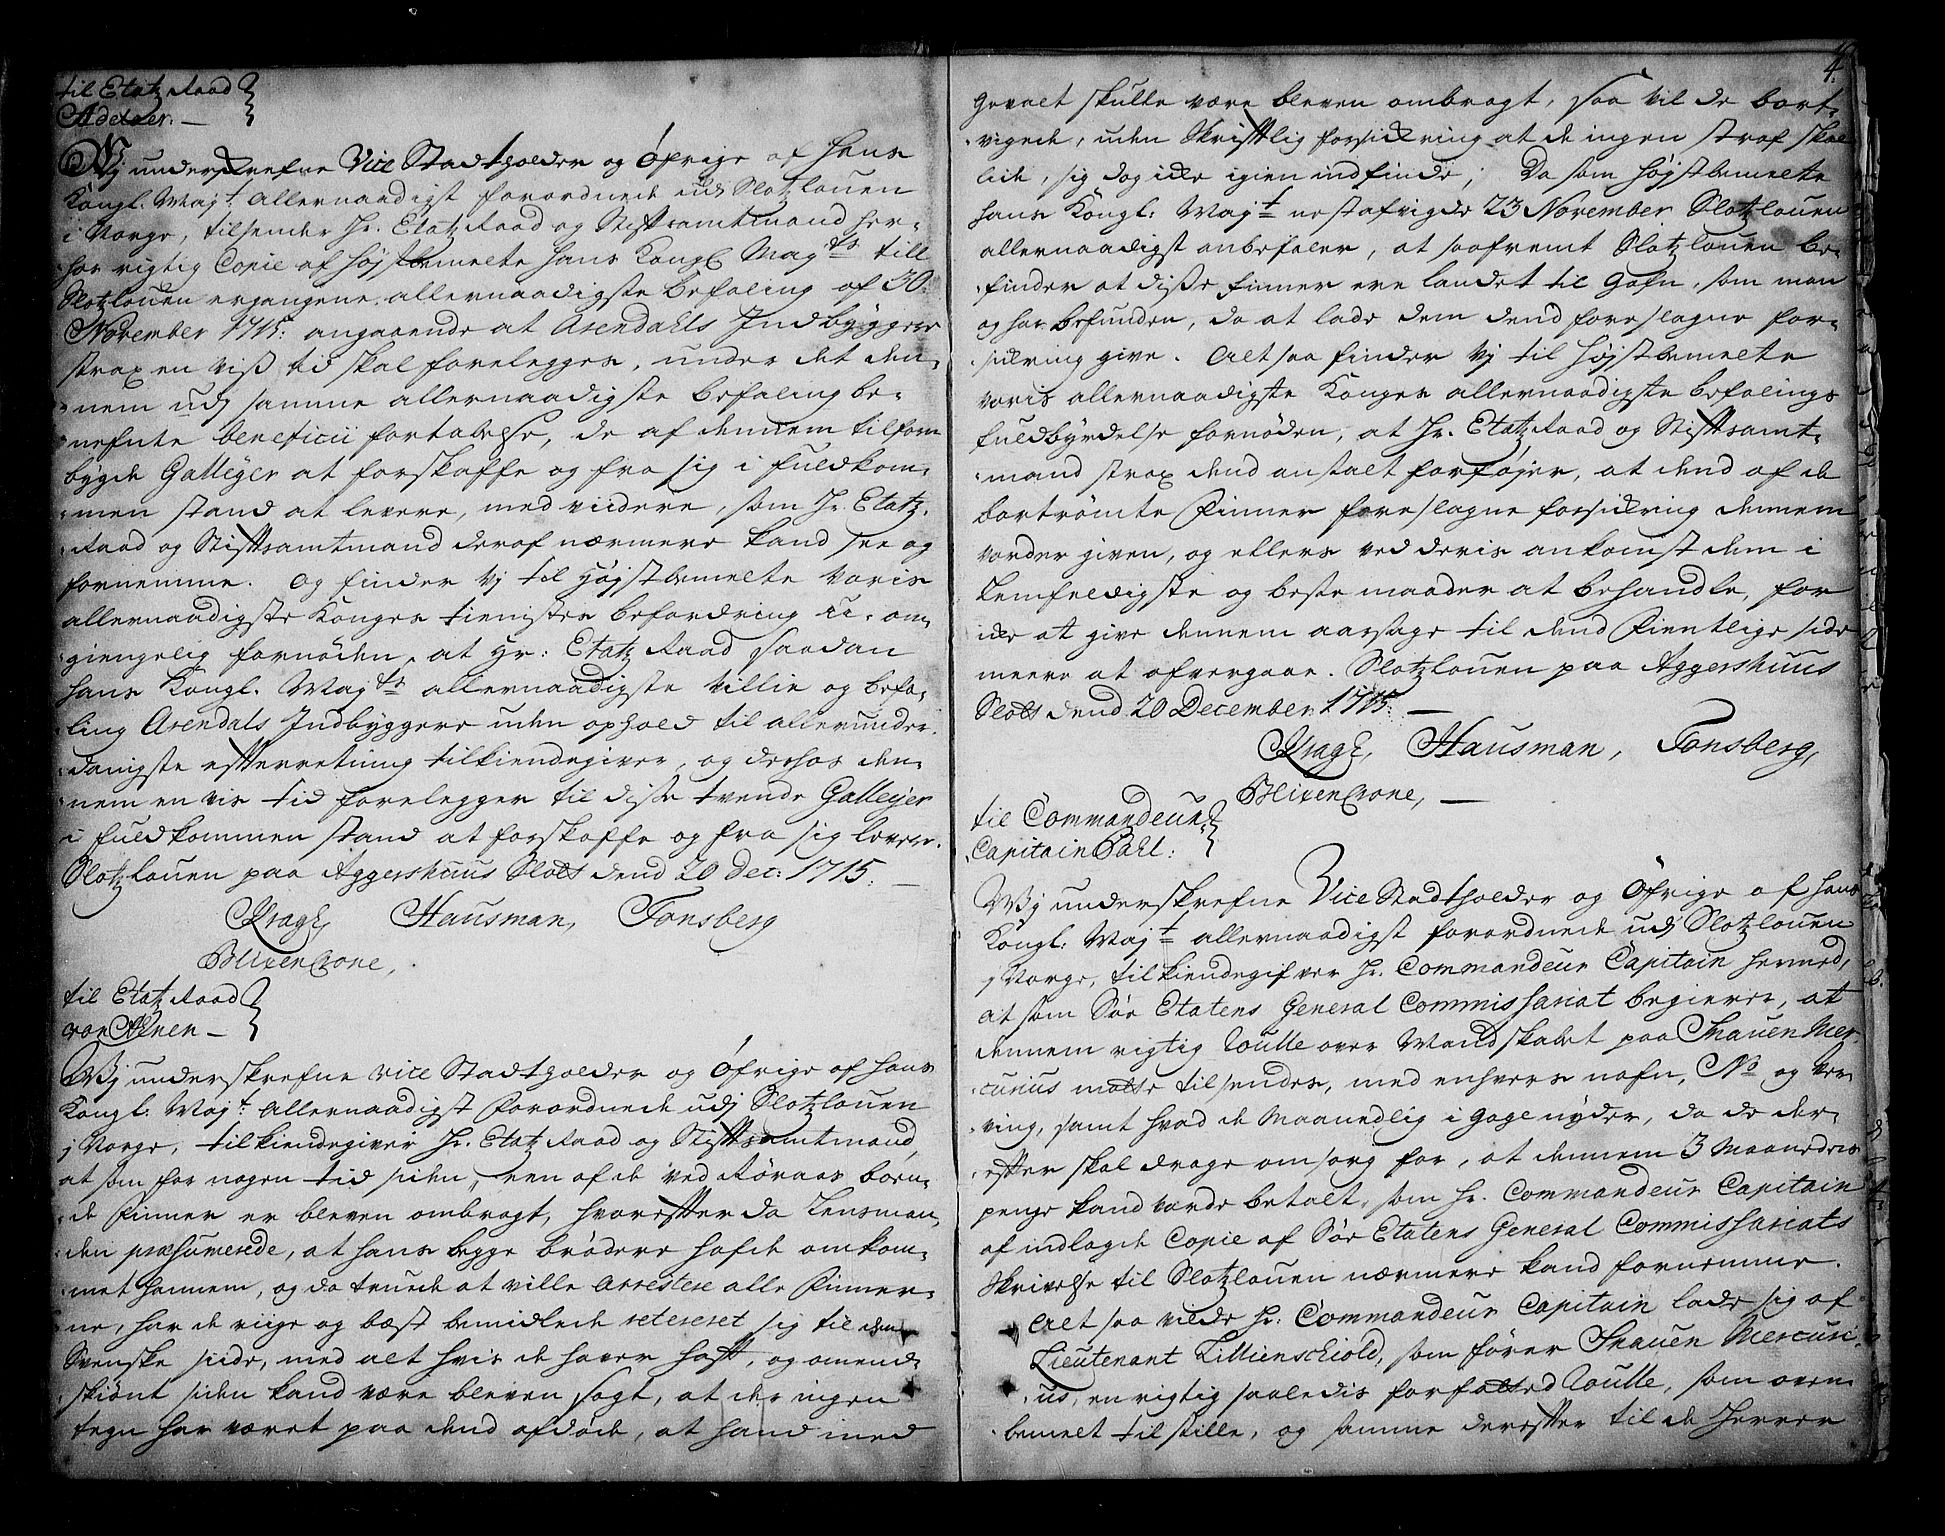 til Etatz Raad
Adeler. —
Wj underskrefne Vice Stadtholder og Øfrige af Hans
Kongl. Maj.t allernaadigst forordnede udj Slotzlouen
i Norge, tilsender Hr. Etatz Raad og Stiftsamtmand her-
hos rigtig Copie af højstbemelte hans Kongl Maj.ts till
Slotzlouen ergangene allernaadigste befaling af 30.
November 1715. angaaende at Arendahls Indbyggere
strax en viss tid skal forelegges, under det den-
nem udj samme allernaadigste befaling be-
nefnte beneficii fortabelse, de af dennem tilforn
bygde Galleyer at forskaffe og fra sig i fuldkom-
men stand at levere, med viidere, som Hr. Etatz-
Raad og Stiftsamtmand deraf nærmere kand see og
fornemme. Og finder Vj til højstbemelte Voris
allernaadigste Konges tienistes befordring u-om-
giengelig fornøden, at Hr: Etatz Raad saadan
hans Kongl. Maj.ts allernaadigste Villie og befa-
ling Arendals Indbyggere uden ophold til allerunder-
danigste efterretning tilkiendegiver, og derhos den-
nem en vis tid forelegger til disse tvende Galleyer
i fuldkommen stand at forskaffe og fra sig levere.
Slotzlouen paa Aggershuus Slott dend 20 Dec: 1715. —
Krage, Hausman, Tonsberg
Blixencrone,
til Etatz Raad
von Ahnen —
Wj underskrefne Vice Stadtholder og Øfrige af Hans
Kongl. Maj.t Allernaadigst Forordnede udj Slotzlouen
j Norge, tilkiendegiver Hr. Etatz Raad og Stiftsamtmand,
at som for nogen tid siden, een af de ved Røraas boen-
de Finner er bleven ombragt, hvorefter da Lensman-
den præsumerede, at hans begge brødere hafde omkom-
met hannem, og da truede at ville arrestere alle Finner-
ne, har de riige og bæst bemidlede retereret sig til den
Svenske siide, med alt hvis de haver haft, og omend-
skiønt siden kand være bleven sagt, at der ingen
tegn har været paa dend afdøde, at hand med
4.
Gevalt skulle være bleven ombragt, saa vil de bort-
vigede, uden Skriftlig forsikring at de ingen straf skal
lide, sig dog icke igien indfinde; Da som højstbemelte
hans Kongl: Maj.t nestafvigde 23 November Slotzlouen
allernaadigst anbefaler, at saafremt Slotzlouen be-
finder at disse Finner ere landet til Gafn, som man
og har befunden, da at lade dem dend foreslagne for-
sikring give. Alt saa finder Vj til højstbemelte
voris allernaadigste Konges allernaadigste befalings
fuldbyrdelse fornøden, at Hr. Etatz Raad og Stiftsamt-
mand strax dend anstalt forføjer, at dend af de
bortrømte Finner foreslagne forsikring dennem
vorder given, og ellers ved deris ankomst dem i
Lemfeldigste og beste maader at behandle, for
icke at give dennem aarsage til dend Fientlige side
meere at ofvergaae. Slotzlouen paa Aggershuus
Slott dend 20 December 1715. —
Krage, Hausman, Tonsberg,
Blixencrone, —
til Commandeur
Capitain Pahl:
Wj underskrefne Vice Stadtholder og Øfrige af hans
Kongl: Maj.t allernaadigst forordnede udj Slotzlouen
j Norge, tilkiendegifver Hr. Commandeur Capitain hermed,
at som Søe Etatens General Commissariat begierer, at
dennem rigtig Roulle over Mandskabet paa Snauen Mer-
curius motte tilsendes, med enhvers nafn, No og Her-
ving, samt hvad de maanedlig i Gage nyder, da de der-
efter skal drage omsorg for, at dennem 3 Maaneders
penge kand vorde betalt, som Hr. Commandeur Capitain
af indlagde Copie af Søe Etatens General Commissariats
Skrivelse til Slotzlouen nærmere kand fornemme.
Alt saa vilde Hr. Commandeur Capitain lade sig af
Lieutenant Lillienschiold, som fører Snauen Mercuri-
us, en rigtig saaledis forfatted Roulle, som oven-
bemelt tilstille, og samme derefter til de Herrer